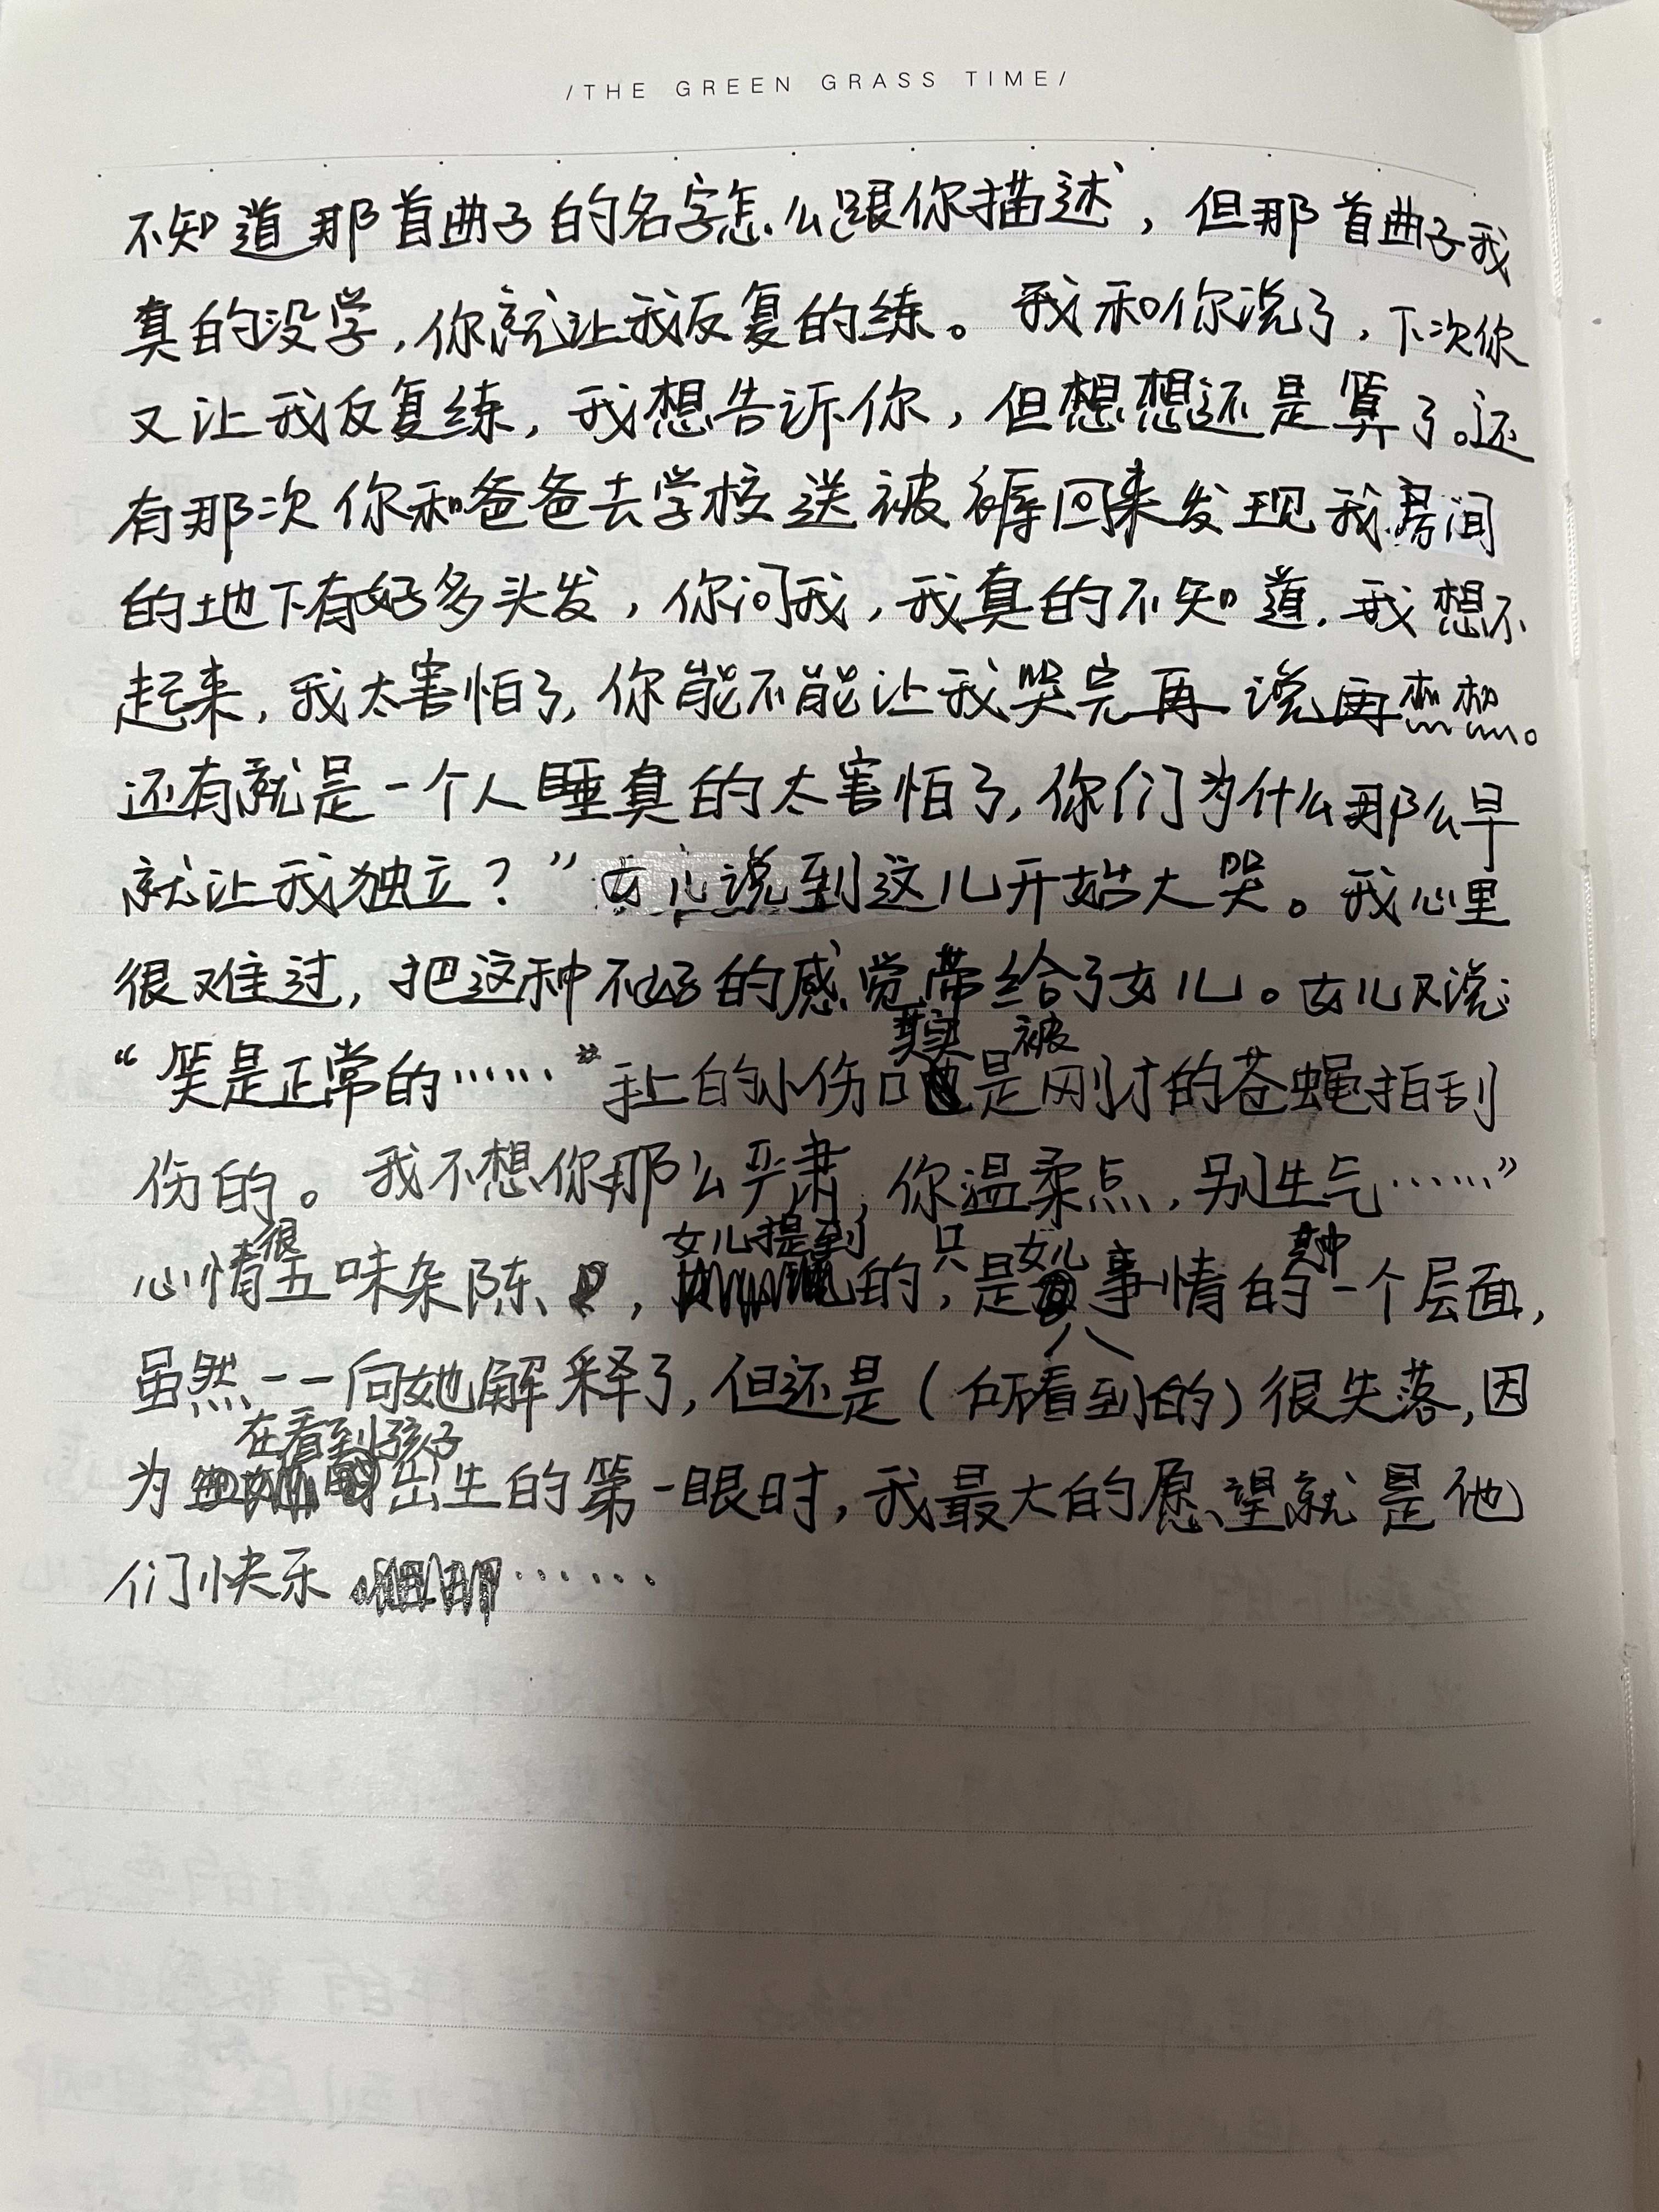 /THE GREEN GRASS TIME/
不知道那首曲子的名字怎么跟你描述，但那首曲子我
真的没学，你就让我反复的练。我和你说了，下次你
又让我反复练，我想告诉你，但想想还是算了。还
有那次你和爸爸去学校送被褥回来发现我房间
的地下有好多头发，你问我，我真的不知道，我想不
起来，我太害怕了，你能不能让我哭完再说再想想。
还有就是一个人睡真的太害怕了，你们为什么那么早
就让我独立？”女儿说到这儿开始大哭。我心里
很难过，把这种不好的感觉带给了女儿。女儿又说：
其实 被
“笑是正常的……”手上的小伤口是刚才的苍蝇拍刮
伤的。我不想你那么严肃，你温柔点，别生气……”
很 女儿提到 只 女儿 其中
心情五味杂陈，的，是事情的一个层面，
虽然一一向她解释了，但还是（所看到的）很失落，因
在看到孩子
为出生的第一眼时，我最大的愿望就是他
们快乐……